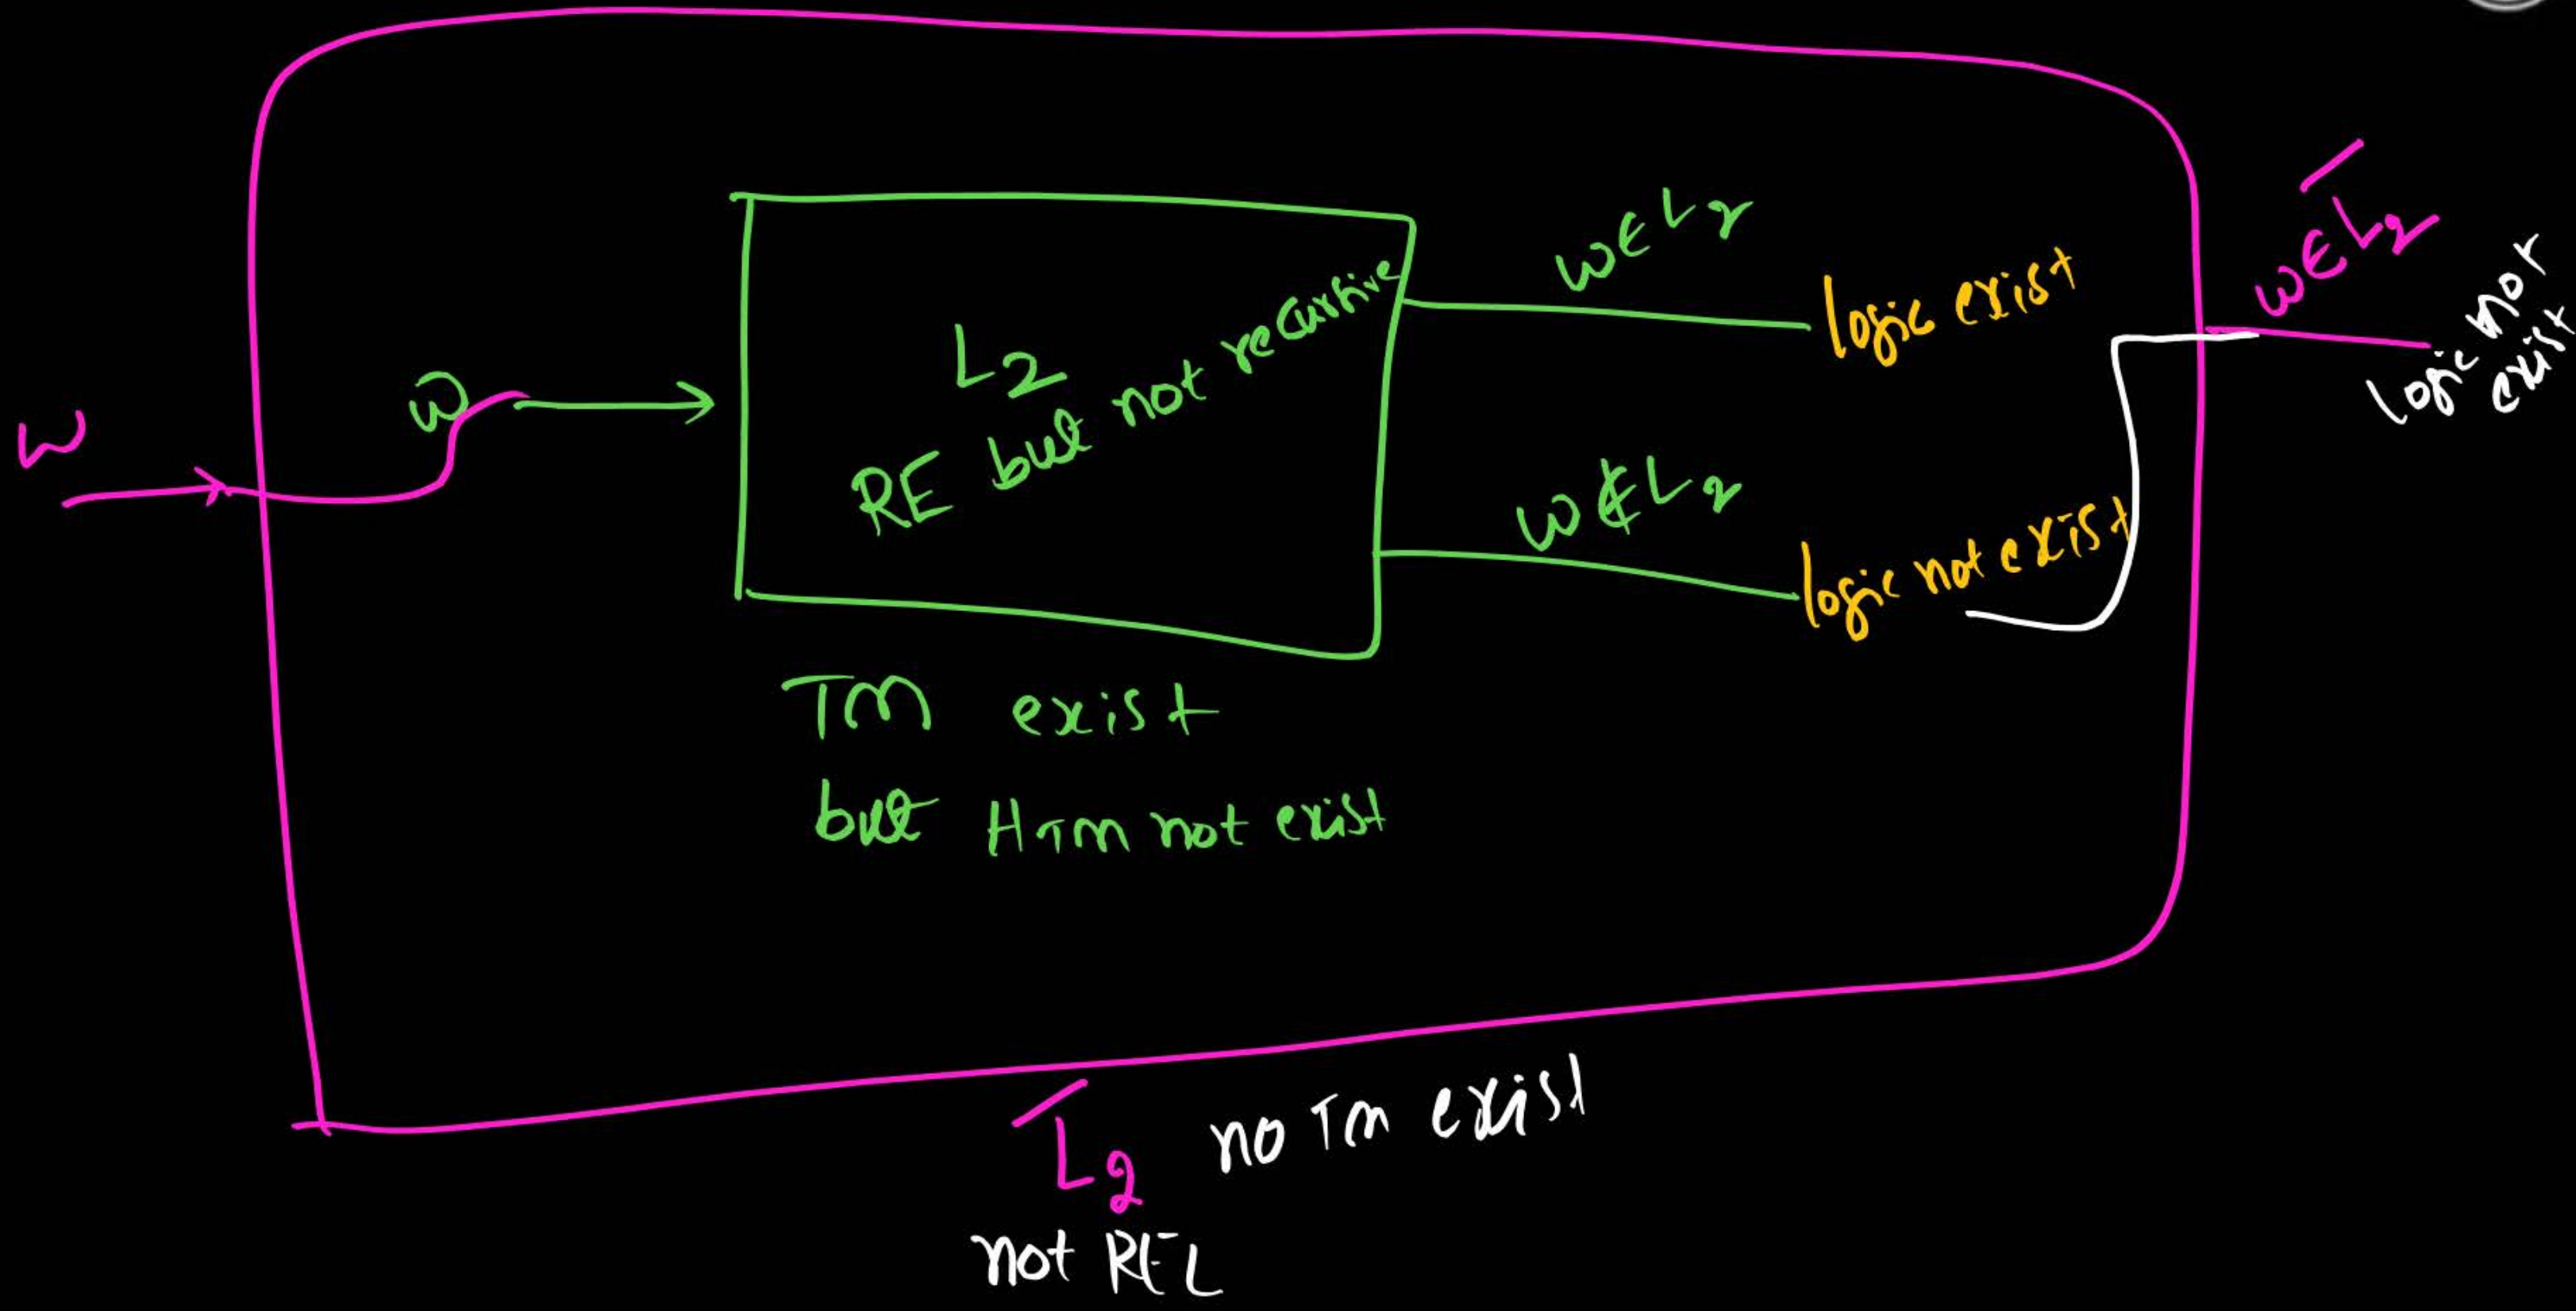 w
w
L2
RE but not recursive
w∈L2
logic exist
w∉L2
logic not exist
w∈L̅2
logic not
exist
TM exist
but HTM not exist
L̅2 no TM exist
not REL